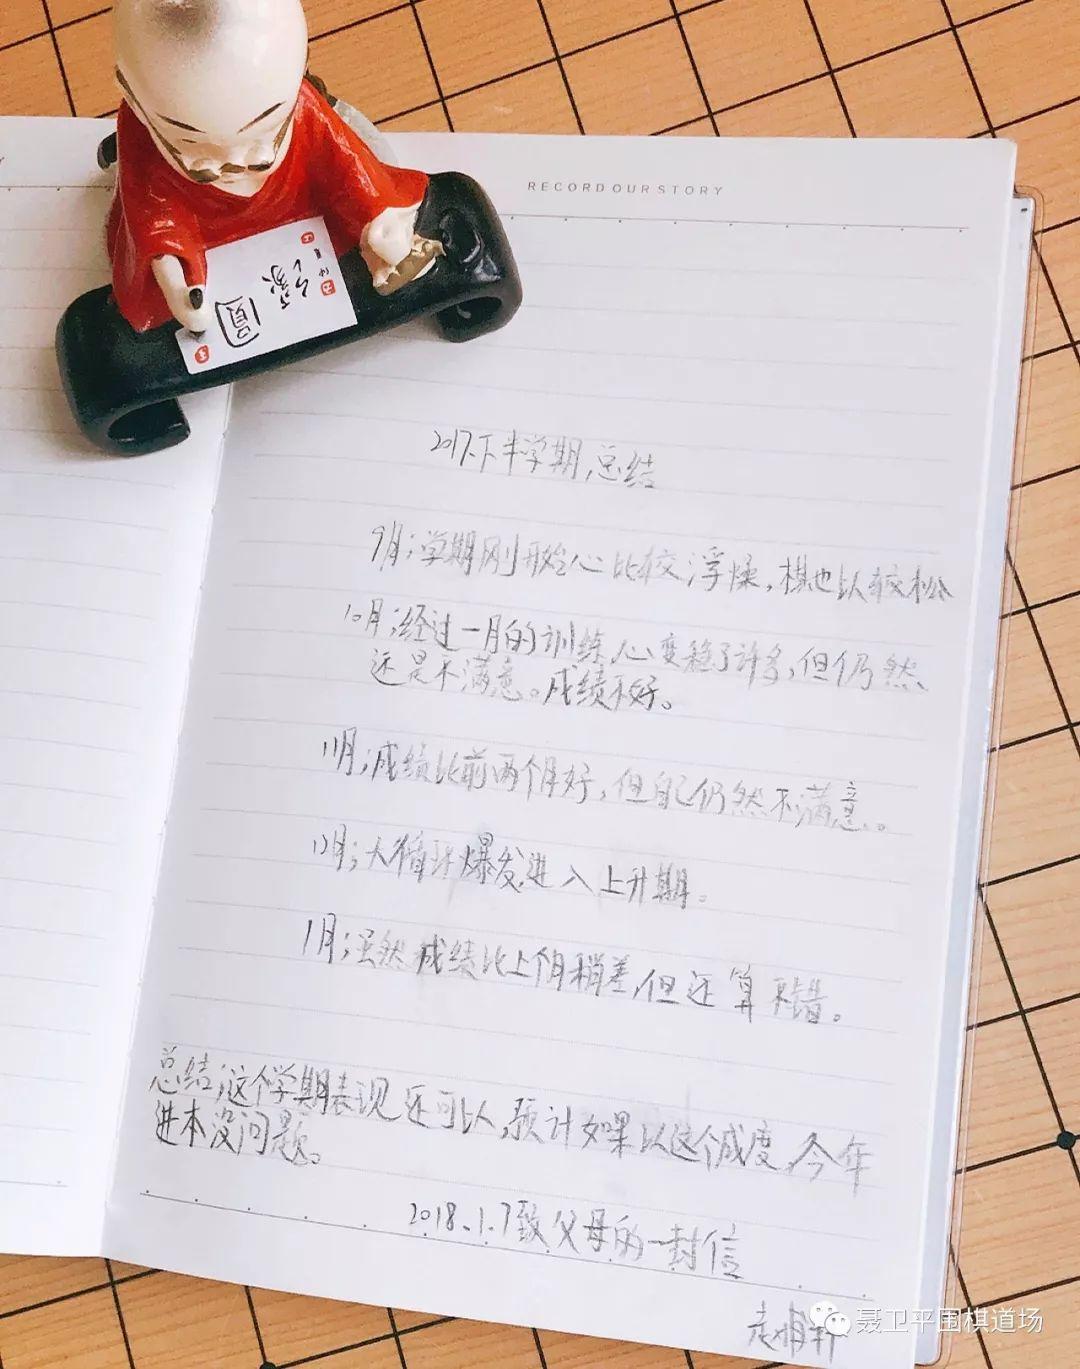 RECORD OUR STORY
缘
圆
2017.下半学期,总结
9月;学期刚开始心比较浮燥,棋也以较松
10月;经过一月的训练,心变稳了许多,但仍然
还是不满意。成绩不好。
11月;成绩比前两个月好,但自己仍然不满意。
12月;大循环爆发,进入上升期。
1月;虽然成绩比上个月稍差,但还算不错。
总结;这个学期表现还可以,预计如果以这个成度,今年
进本没问题。
2018.1.7致父母的一封信
聂卫平围棋道场